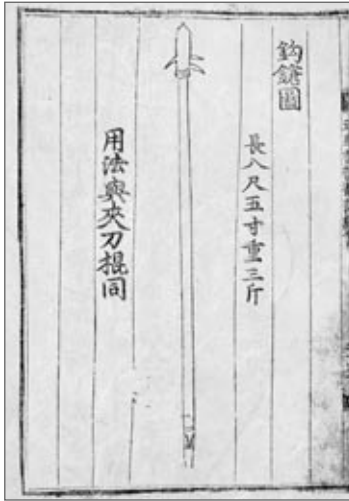 鈎鎗圖
長八尺五寸重三斤
用法與夾刀棍同